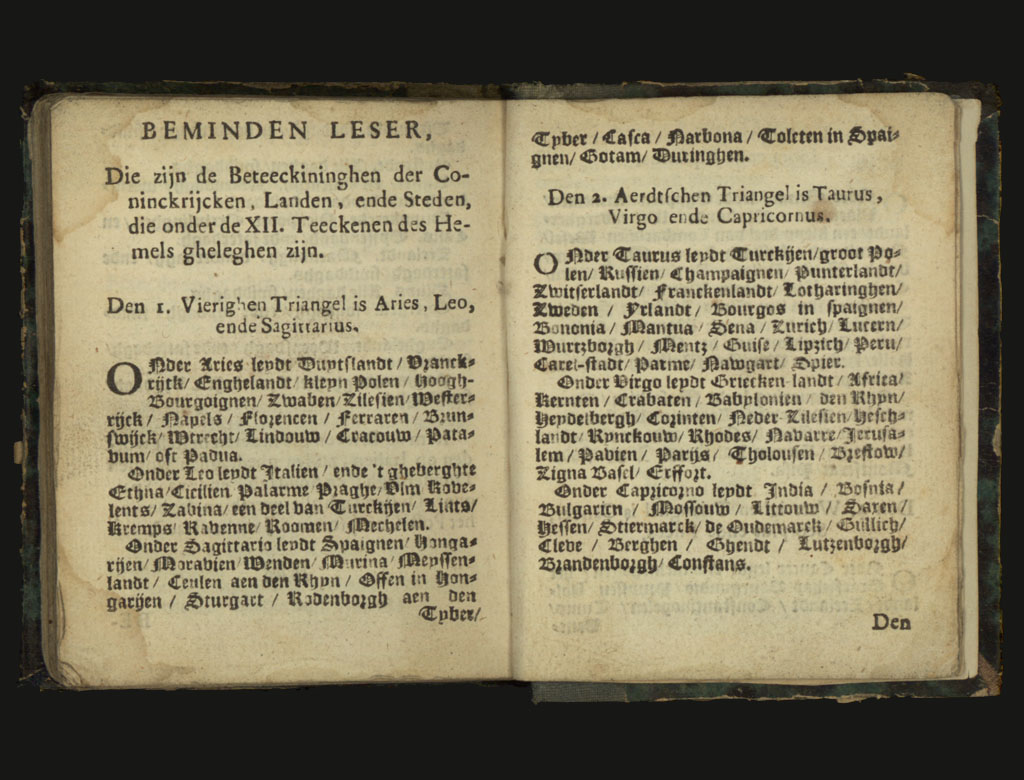 BEMINDEN LESER,
Die zijn de Beteeckininghen der Co-
ninckrijcken, Landen, ende Steden,
die onder de XII. Teeckenen des He-
mels gheleghen zijn.
Den 1. Vierighen Triangel is Aries, Leo,
ende Sagittarius.
ONder Aries leydt Duytslandt / Vranck-
rijck / Enghelandt / kleyn Polen / Hoogh-
Bourgoignen / Zwaben / Zilesien / Wester-
rijck / Napels / Florencen / Ferraren / Brun-
swijck / Wtrecht / Lindouw / Cracouw / Pata-
vum / oft Padua.
Onder Leo leydt Italien / ende 't gheberghte
Ethna / Cicilien Palarme Praghe / Ulm Kove-
lents / Zabina / een deel van Turckijen / Lints /
Kremps Ravenne / Roomen / Mechelen.
Onder Sagittario leydt Spaignen / Honga-
rijen / Moravien / Wenden / Murina / Meyssen-
landt / Ceulen aen den Rhyn / Offen in Hon-
garijen / Sturgart / Rodenborgh aen den
Tyber /
Tyber / Casca / Narbona / Toleten in Spai-
gnen / Gotam / Duringhen.
Den 2. Aerdtschen Triangel is Taurus,
Virgo ende Capricornus.
ONder Taurus leydt Turckijen / groot Po-
len / Russien / Champaignen / Punterlandt /
Zwitserlandt / Franckenlandt / Lotharinghen /
Zweden / Yrlandt / Bourgos in spaignen /
Bononia / Mantua / Sena / Zurich / Lucern /
Wurtzborgh / Mentz / Guise / Lipzich / Peru /
Carel-stadt / Parme / Nawgart / Spier.
Onder Virgo leydt Griecken landt / Africa /
Kernten / Crabaten / Babylonien / den Rhyn /
Heydelbergh / Corinten / Neder Zilesien / Hesch-
landt / Rynckouw / Rhodes / Navarre / Jerusa-
lem / Pavien / Parijs / Tholousen / Breslow /
Zigna Basel / Erffort.
Onder Capricorno leydt India / Bosnia /
Bulgarien / Mossouw / Littouw / Saxen /
Hessen / Stiermarck / de Oudemarck / Gullich /
Cleve / Berghen / Ghendt / Lutzenborgh /
Brandenborgh / Constans.
Den